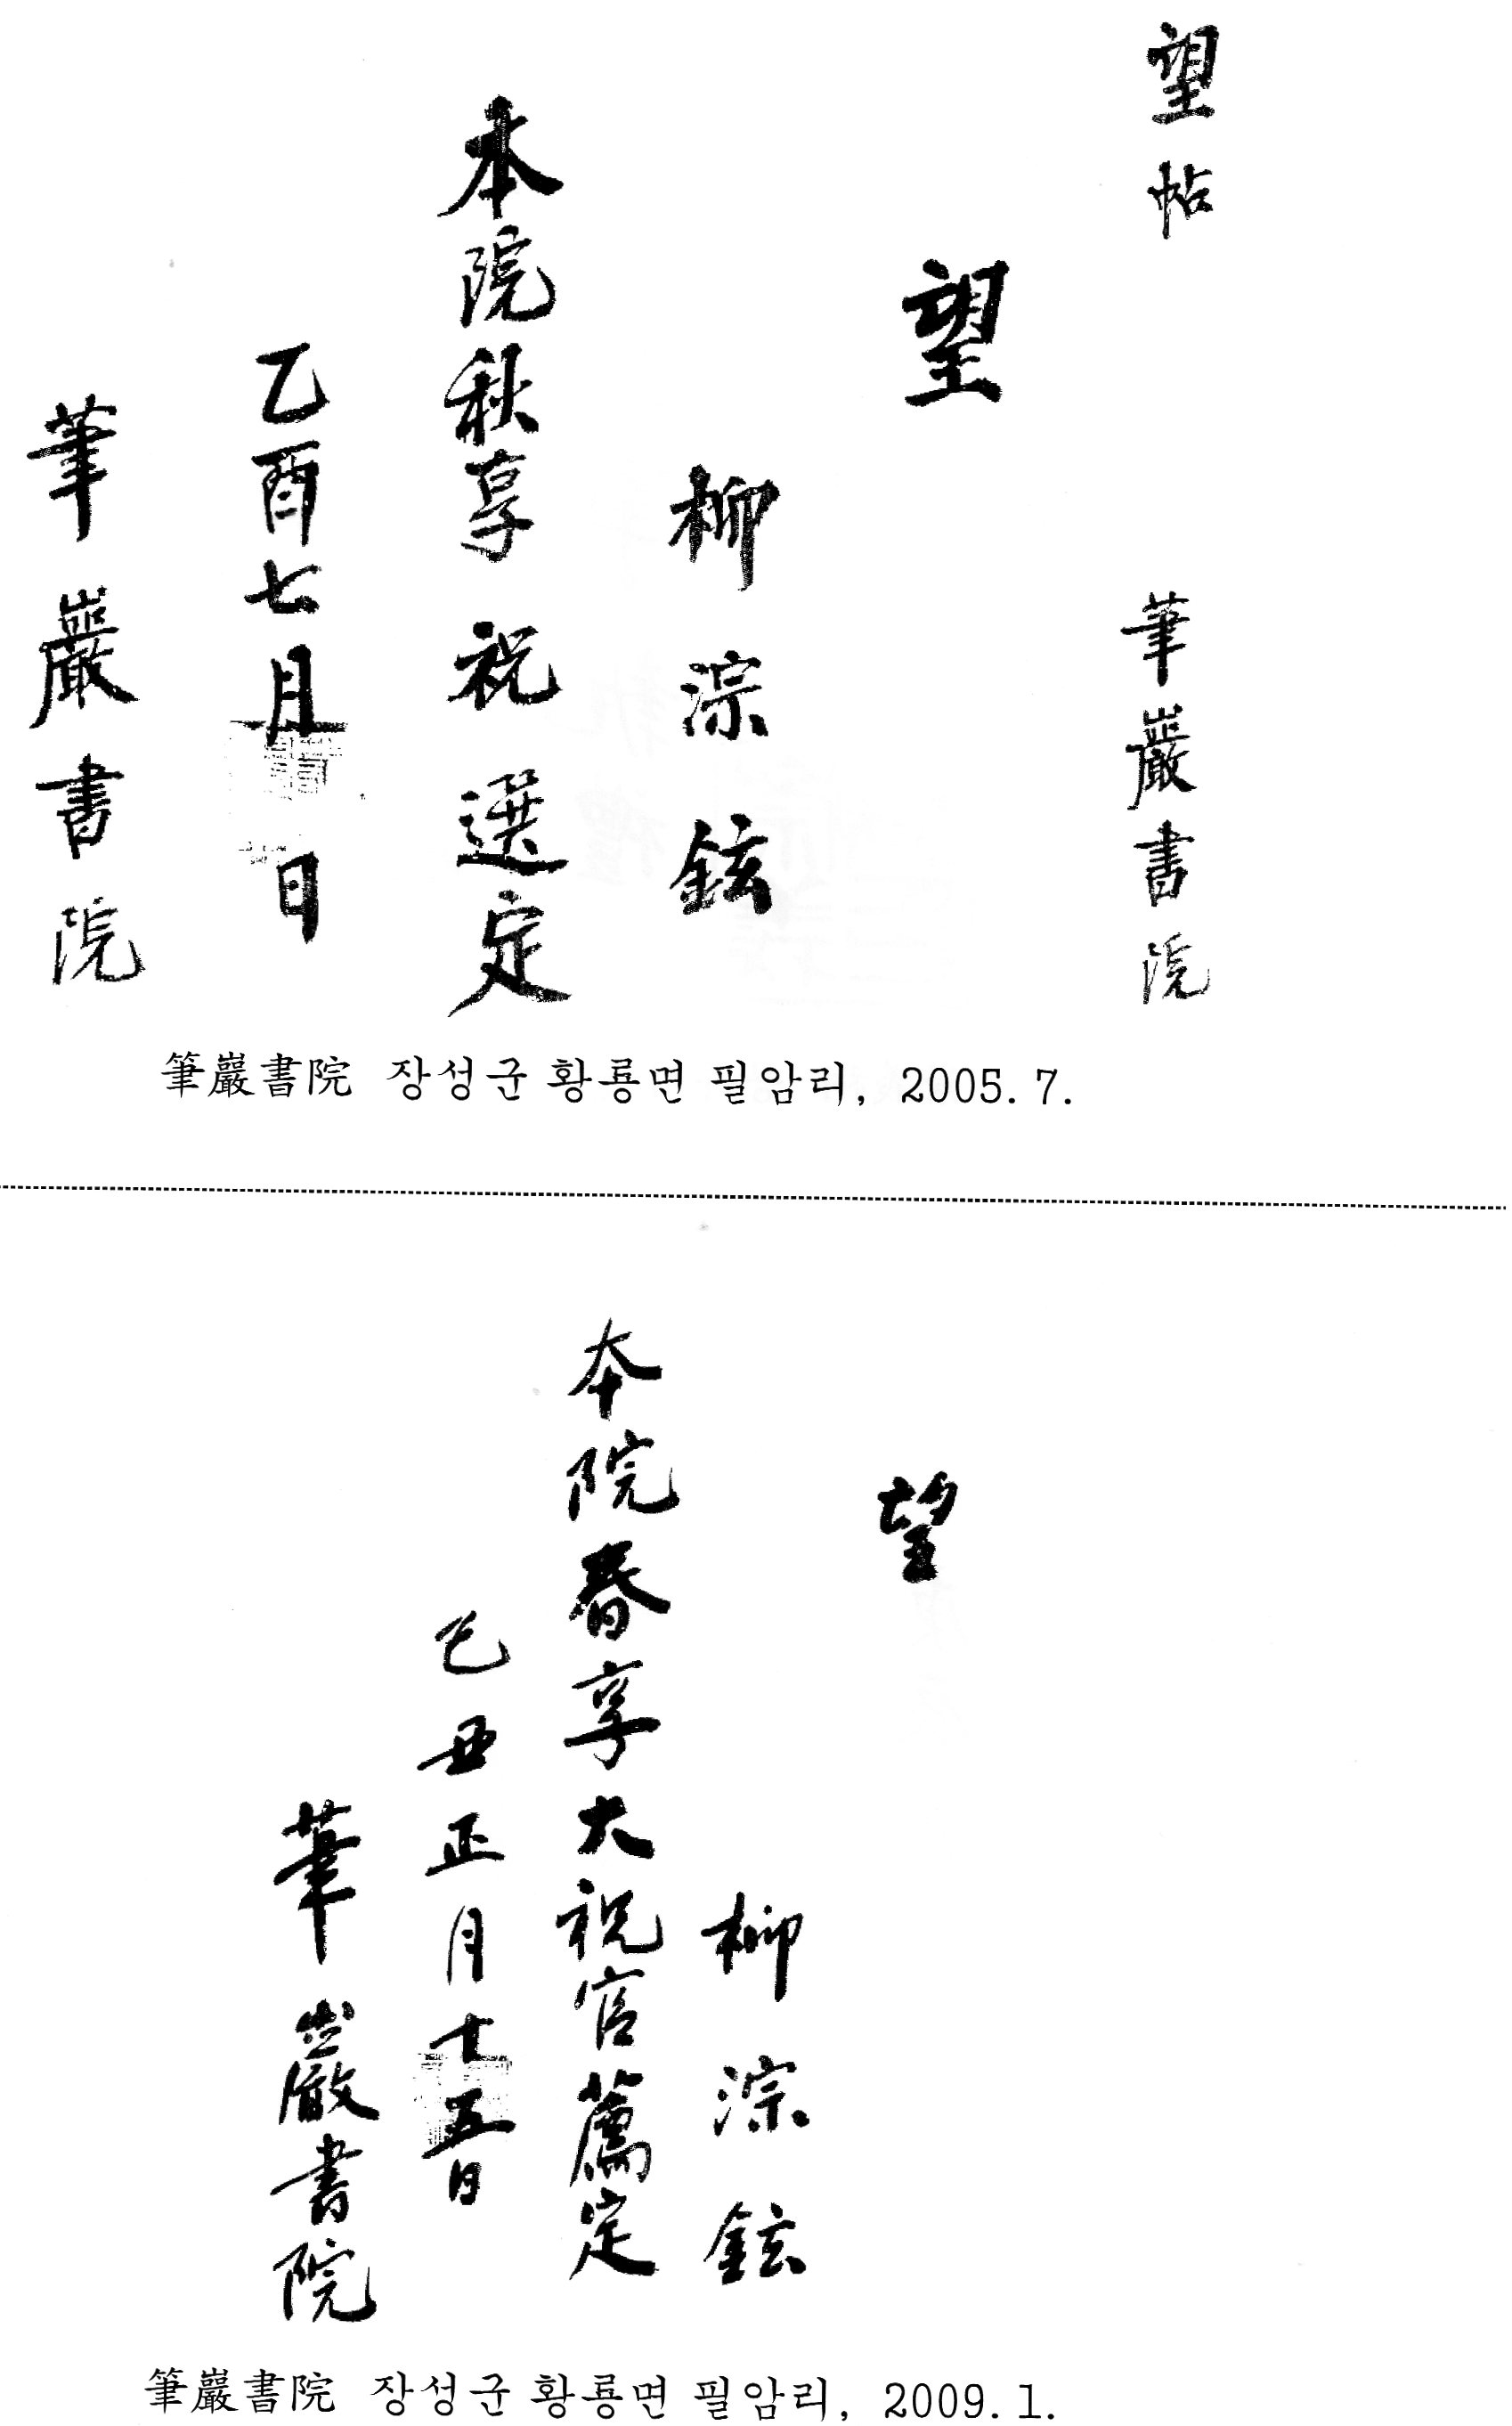 望帖 筆巖書院
望
柳淙鉉
本院秋享祝選定
乙酉七月 日
筆巖書院
筆巖書院 장성군 황룡면 필암리, 2005. 7.
望
柳淙鉉
本院春享大祝官薦定
己丑正月十五日
筆巖書院
筆巖書院 장성군 황룡면 필암리, 2009. 1.